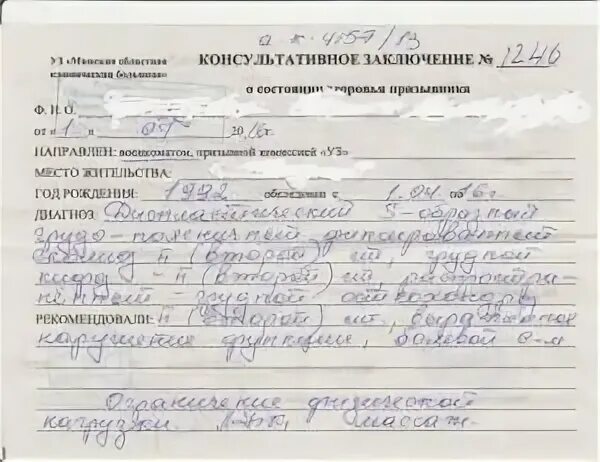 а к 4057/13
УЗ «Минская областная КОНСУЛЬТАТИВНОЕ ЗАКЛЮЧЕНИЕ № 1246
клиническая больница»
о состоянии здоровья призывника
Ф. И. О.
от « 1 » 07 2016г.
НАПРАВЛЕН: военкоматом, призывной комиссией «УЗ»
МЕСТО ЖИТЕЛЬСТВА:
ГОД РОЖДЕНИЯ: 1992 обследован с 1.04 16г
ДИАГНОЗ: Диспластический S-образный
грудо-поясничный фиксированный
сколиоз II (второй) ст, грудной
кифоз - II (второй) ст,
грудной остеохондроз
РЕКОМЕНДОВАЛИ: II (второй) ст, выраженное
нарушение функции, болевой с-м
Ограничение физической
нагрузки. ЛФК, массаж.